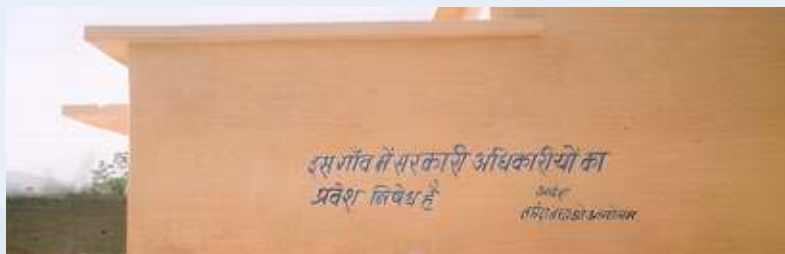 इस गाँव में सरकारी अधिकारीयों का
प्रवेश निषेध है
आदेश
नर्मदा बचाओ आन्दोलन